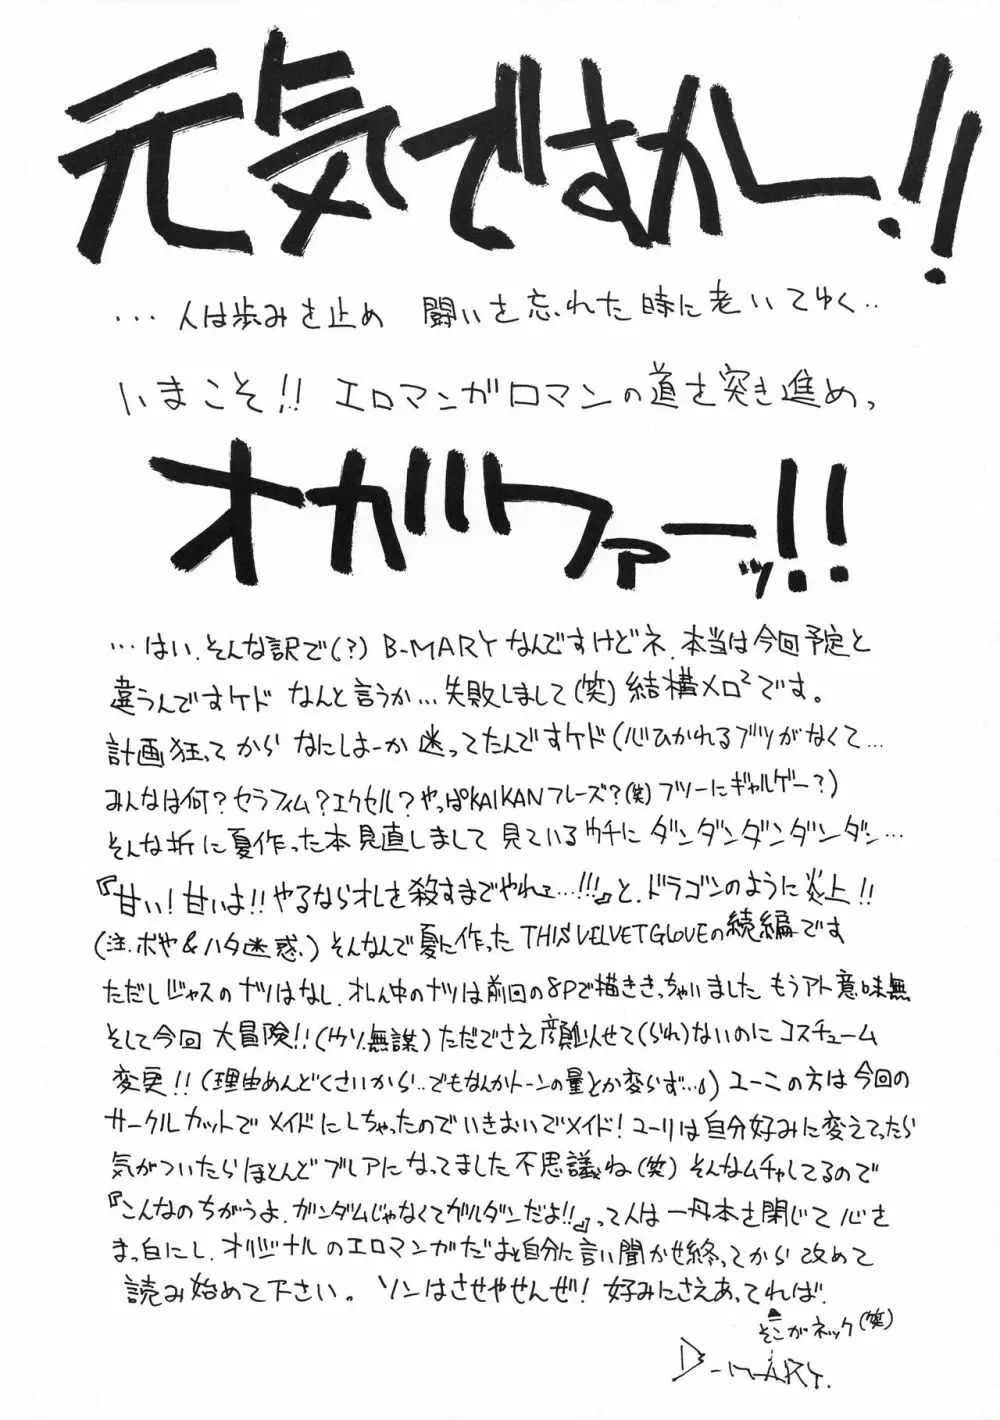 元気ですかー!!
…人は歩みを止め 闘いを忘れた時に老いてゆく..
いまこそ!! エロマンガロマンの道を突き進めっ
オガワァーッ!!
…はい、そんな訳で(?) B-MARYなんですけどネ、本当は今回予定と
違うんですケド なんと言うか…失敗しまして(笑) 結構メロ²です。
計画狂ってから なにしよーか 迷ってたんですケド(心ひかれるブツがなくて…
みんなは何?セラフィム?エクセル?やっぱKAIKANフレーズ?(笑)フツーにギャルゲー?)
そんな折に夏作った本見直しまして 見ているウチに ダンダンダンダンダン…
『甘い!甘いよ!!やるならオレを殺すまでやれェ…!!!』と、ドラゴンのように炎上!!
(注.ボヤ&ハタ迷惑.) そんなんで夏に作った THIS VELVET GLOVEの続編です
ただしジャスのナツはなし、オレん中のナツは前回の8Pで描ききっちゃいました もうアト意味無
そして今回 大冒険!!(ウソ.無謀) ただでさえ顔似せて(られ)ないのに コスチューム
変更!!(理由めんどくさいから..でもなんかトーンの量とか変らず…♩) ユーこの方は今回の
サークルカットで メイドにしちゃったのでいきおいでメイド!ユーリは自分好みに変えてったら
気がついたらほとんどブレアになってました 不思議ね(笑) そんなムチャしてるので
『こんなのちがうよ、ガンダムじゃなくてガルダンだよ!!』って人は 一旦本を閉じて 心を
まっ白にし、オリジナルのエロマンガだぁと自分に言い聞かせ終ってから 改めて
読み始めて下さい。 ソンはさせやせんぜ! 好みにさえあってれば.
そこがネック(笑)
B-MARY.